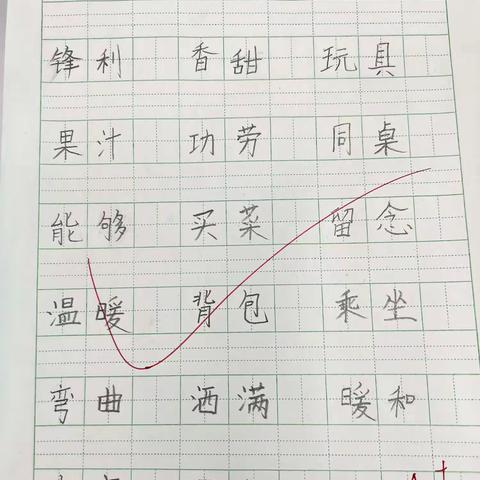 锋利 香甜 玩具
果汁 功劳 同桌
能够 买菜 留念
温暖 背包 乘坐
弯曲 洒满 暖和